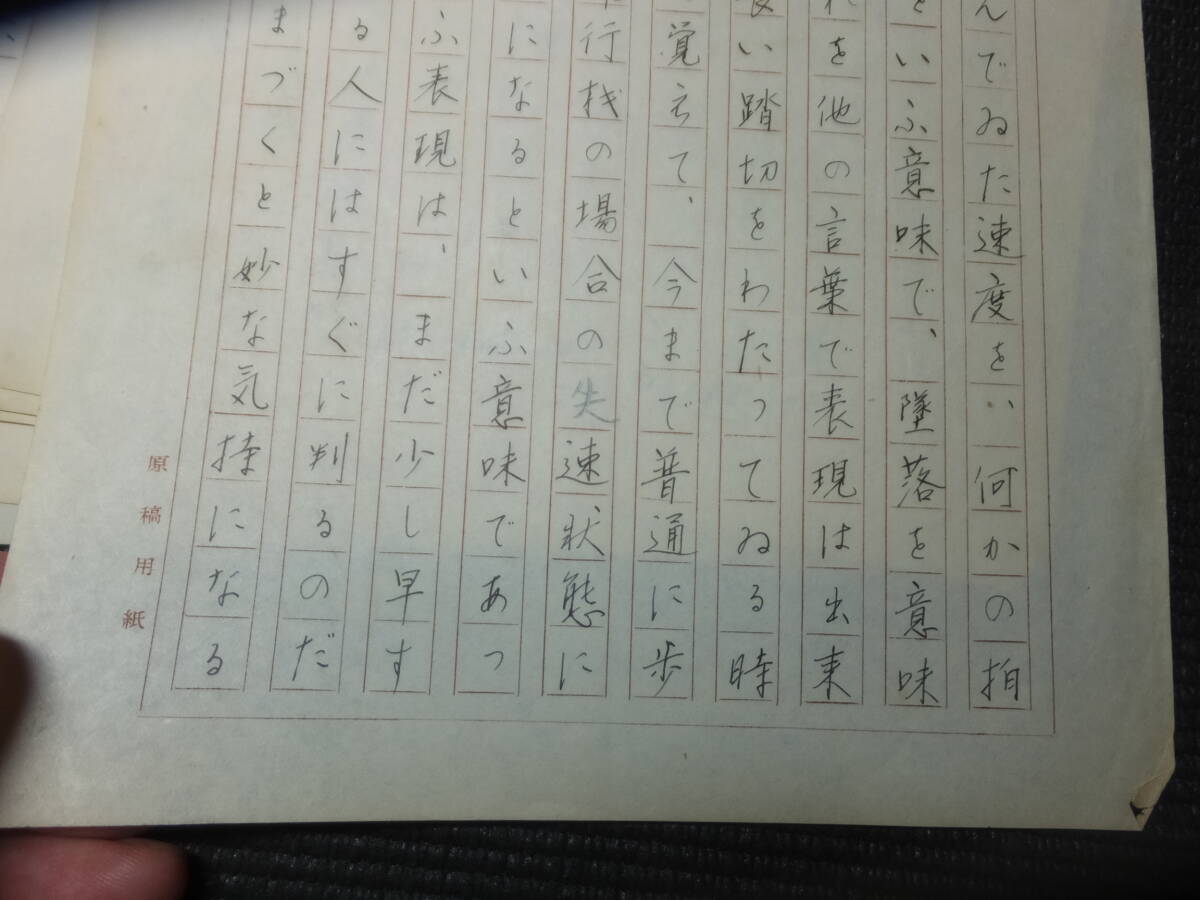 んでゐた速度を、何かの拍
といふ意味で、墜落を意味
れを他の言葉で表現は出来
い踏切をわたってゐる時
覚えて、今まで普通に歩
行機の場合の失速状態に
になるといふ意味であっ
ふ表現は、まだ少し早す
る人にはすぐに判るのだ
まづくと妙な気持になる
原稿用紙